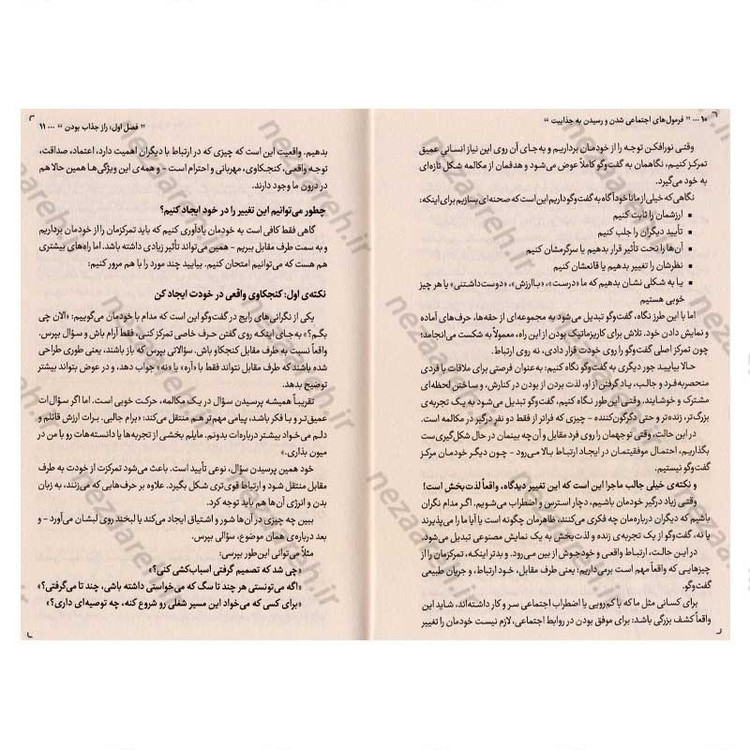 ۱۰ ... " فرمول‌های اجتماعی شدن و رسیدن به جذابیت "
وقتی نورافکن توجه را از خودمان برداریم و به‌جای آن روی این نیاز انسانی عمیق
تمرکز کنیم، نگاهمان به گفت‌وگو کاملاً عوض می‌شود و هدفمان از مکالمه شکل تازه‌ای
به خود می‌گیرد.
نگاهی که خیلی از ما ناخودآگاه به گفت‌وگو داریم این است که صحنه‌ای بسازیم برای اینکه:
▪ ارزشمان را ثابت کنیم
▪ تأیید دیگران را جلب کنیم
▪ آن‌ها را تحت تأثیر قرار بدهیم یا سرگرمشان کنیم
▪ نظرشان را تغییر بدهیم یا قانعشان کنیم
▪ یا به شکلی نشان بدهیم که ما «درست»، «باارزش»، «دوست‌داشتنی» یا هر چیز
خوبی هستیم
اما با این طرز نگاه، گفت‌وگو تبدیل می‌شود به مجموعه‌ای از حقه‌ها، حرف‌های آماده
و نمایش دادن خود. تلاش برای کاریزماتیک بودن از این راه، معمولاً به شکست می‌انجامد؛
چون تمرکز اصلی گفت‌وگو را روی خودت قرار دادی، نه روی ارتباط.
حالا بیایید جور دیگری به گفت‌وگو نگاه کنیم: به‌عنوان فرصتی برای ملاقات با فردی
منحصربه‌فرد و جالب، یاد گرفتن از او، لذت بردن از بودن در کنارش، و ساختن لحظه‌ای
مشترک و خوشایند. وقتی این‌طور نگاه کنیم، گفت‌وگو تبدیل می‌شود به یک تجربه‌ی
بزرگ‌تر، زنده‌تر و حتی دگرگون‌کننده – چیزی که فراتر از فقط دو نفر درگیر در مکالمه است.
در این حالت، وقتی توجهمان را روی فرد مقابل و آن‌چه بینمان در حال شکل‌گیری‌ست
بگذاریم، احتمال موفقیتمان در ایجاد ارتباط بالا می‌رود – چون دیگر خودمان مرکز
گفت‌وگو نیستیم.
و نکته‌ی خیلی جالب ماجرا این است که این تغییر دیدگاه، واقعاً لذت‌بخش است!
وقتی زیاد درگیر خودمان باشیم، دچار استرس و اضطراب می‌شویم. اگر مدام نگران
باشیم که دیگران درباره‌مان چه فکری می‌کنند، ظاهرمان چگونه است یا آیا ما را می‌پذیرند
یا نه، گفت‌وگو از یک تجربه‌ی زنده و لذت‌بخش به یک نمایش مصنوعی تبدیل می‌شود.
در این حالت، ارتباط واقعی و خودجوش از بین می‌رود. و بدتر اینکه، تمرکزمان را از
چیزهایی که واقعاً مهم است برمی‌داریم: یعنی طرف مقابل، خود ارتباط، و جریان طبیعی
گفت‌وگو.
برای کسانی مثل ما که با کم‌رویی یا اضطراب اجتماعی سر و کار داشته‌اند، شاید این
واقعاً کشف بزرگی باشد: برای موفق بودن در روابط اجتماعی، لازم نیست خودمان را تغییر
" فصل اول: راز جذاب بودن " ... ۱۱
بدهیم. واقعیت این است که چیزی که در ارتباط با دیگران اهمیت دارد، اعتماد، صداقت،
توجه واقعی، کنجکاوی، مهربانی و احترام است – و همه‌ی این ویژگی‌ها همین حالا هم
در درون ما وجود دارند.
چطور می‌توانیم این تغییر را در خود ایجاد کنیم؟
گاهی فقط کافی است به خودمان یادآوری کنیم که باید تمرکزمان را از خودمان برداریم
و به سمت طرف مقابل ببریم – همین می‌تواند تأثیر زیادی داشته باشد. اما راه‌های بیشتری
هم هست که می‌توانیم امتحان کنیم. بیایید چند مورد را با هم مرور کنیم:
نکته‌ی اول: کنجکاوی واقعی در خودت ایجاد کن
یکی از نگرانی‌های رایج در گفت‌وگو این است که مدام با خودمان می‌گوییم: «الان چی
بگم؟» به‌جای اینکه روی گفتن حرف خاصی تمرکز کنی، فقط آرام باش و سؤال بپرس.
واقعاً نسبت به طرف مقابل کنجکاو باش. سؤالاتی بپرس که باز باشند، یعنی طوری طراحی
شده باشند که طرف مقابل نتواند فقط با «آره» یا «نه» جواب دهد، و در عوض بتواند بیشتر
توضیح بدهد.
تقریباً همیشه پرسیدن سؤال در یک مکالمه، حرکت خوبی است. اما اگر سؤال‌ات
عمیق‌تر و با فکر باشد، پیامی مهم‌تر هم منتقل می‌کند: «برام جالبی. برات ارزش قائلم و
دلم می‌خواد بیشتر درباره‌ات بدونم. مایلم بخشی از تجربه‌ها یا دانسته‌هات رو با من در
میون بذاری.»
خود همین پرسیدن سؤال، نوعی تأیید است. باعث می‌شود تمرکزت از خودت به طرف
مقابل منتقل شود و ارتباط قوی‌تری شکل بگیرد. علاوه بر حرف‌هایی که می‌زنند، به زبان
بدن و انرژی آن‌ها هم باید توجه کرد.
ببین چه چیزی در آن‌ها شور و اشتیاق ایجاد می‌کند یا لبخند روی لبشان می‌آورد – و
بعد درباره‌ی همان موضوع، سؤالی بپرس.
مثلاً می‌توانی این‌طور بپرسی:
«چی شد که تصمیم گرفتی اسباب‌کشی کنی؟»
«اگه می‌تونستی هر چند تا سگ که می‌خواستی داشته باشی، چند تا می‌گرفتی؟»
«برای کسی که می‌خواد این مسیر شغلی رو شروع کنه، چه توصیه‌ای داری؟»
nezaareh.ir